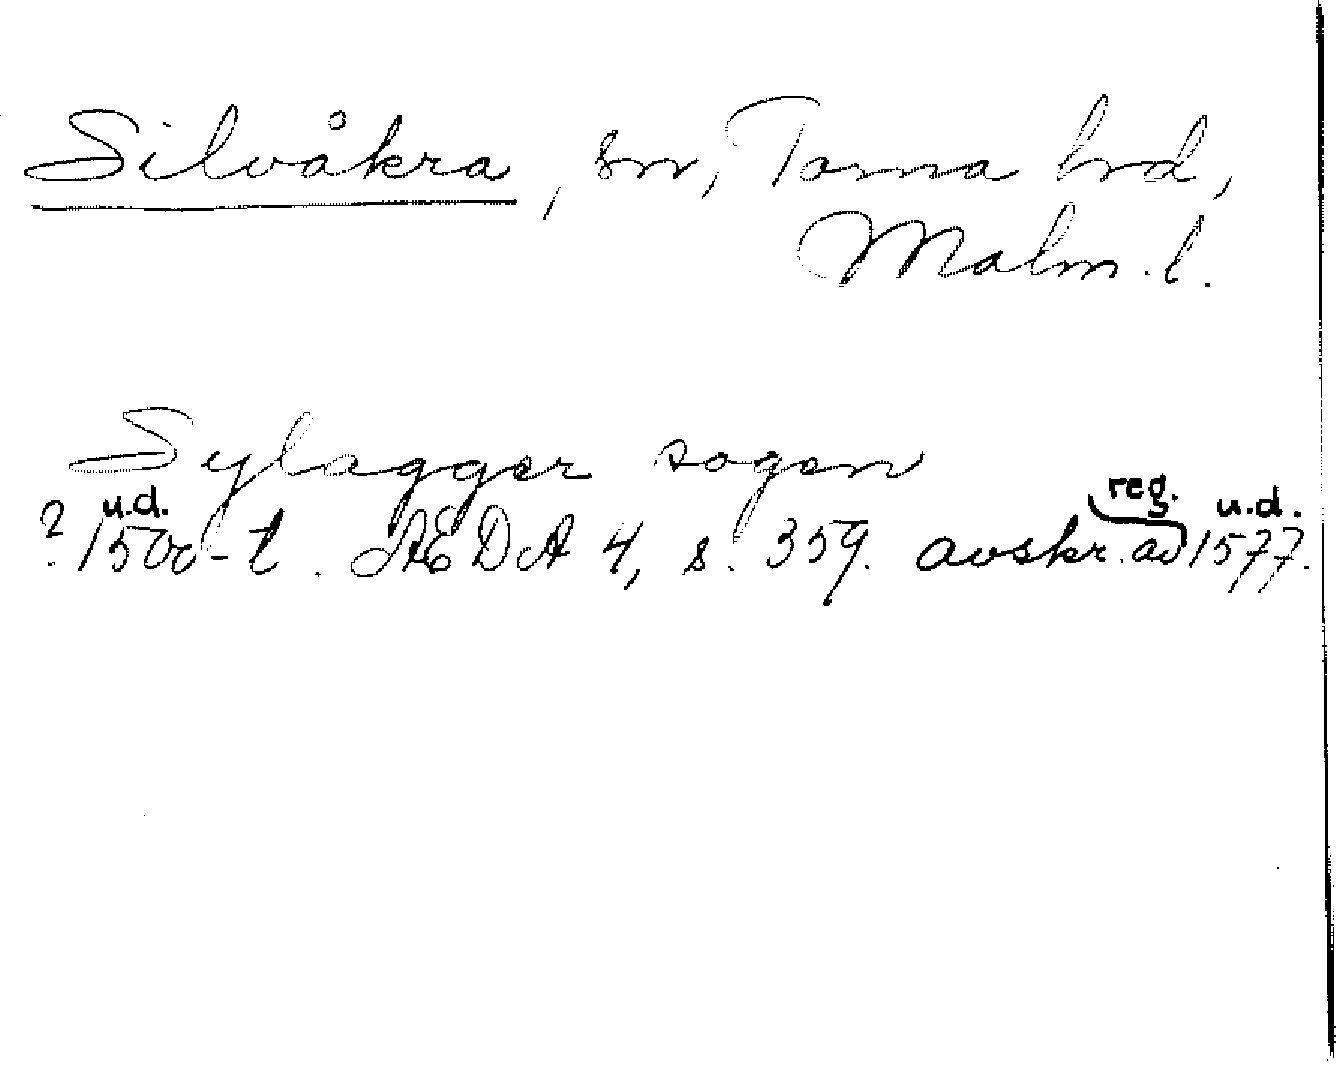 Silvåkra, sn, Torna hrd,
Malm. l.
Sylagger sogen
u.d. reg. u.d.
? 1500-t. ÆDA 4, s. 359. avskr. av 1577.